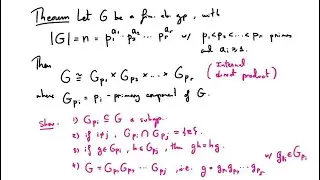 Theorem Let G be a fin. ab. gp, with
|G| = n = p₁^{a₁} · p₂^{a₂} ··· pᵣ^{aᵣ} w/ p₁<p₂<...<pᵣ primes
and aᵢ ≥ 1.
Then
G ≅ G_{p₁} × G_{p₂} × ... × G_{pᵣ} (Internal direct product)
where G_{pᵢ} = pᵢ-primary component of G.
Show. 1) G_{pᵢ} ⊆ G a subgp.
2) if i≠j, G_{pᵢ} ∩ G_{pⱼ} = {e}.
3) if g∈G_{pᵢ}, h∈G_{pⱼ}, then gh=hg.
4) G = G_{p₁}G_{p₂}···G_{pᵣ}, i.e. g = g_{p₁}g_{p₂}···g_{pᵣ} w/ g_{pᵢ}∈G_{pᵢ}